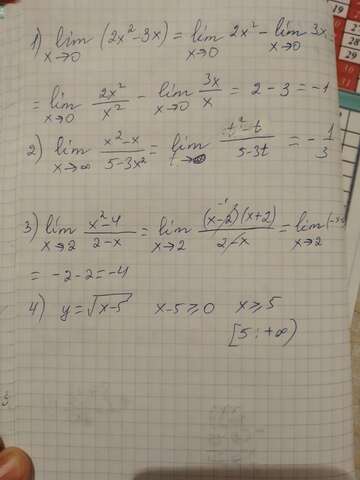 1) lim x→0 (2x² - 3x) = lim x→0 2x² - lim x→0 3x
= lim x→0 2x²/x² - lim x→0 3x/x = 2 - 3 = -1
2) lim x→∞ (x² - x)/(5 - 3x²) = lim (t² - t)/(5 - 3t) = -1/3
3) lim x→2 (x² - 4)/(2 - x) = lim x→2 (x - 2)(x + 2)/(2 - x) = lim x→2
= -2 - 2 = -4
4) y = √(x-5) x - 5 ≥ 0 x ≥ 5
[5; +∞)
19
28
29